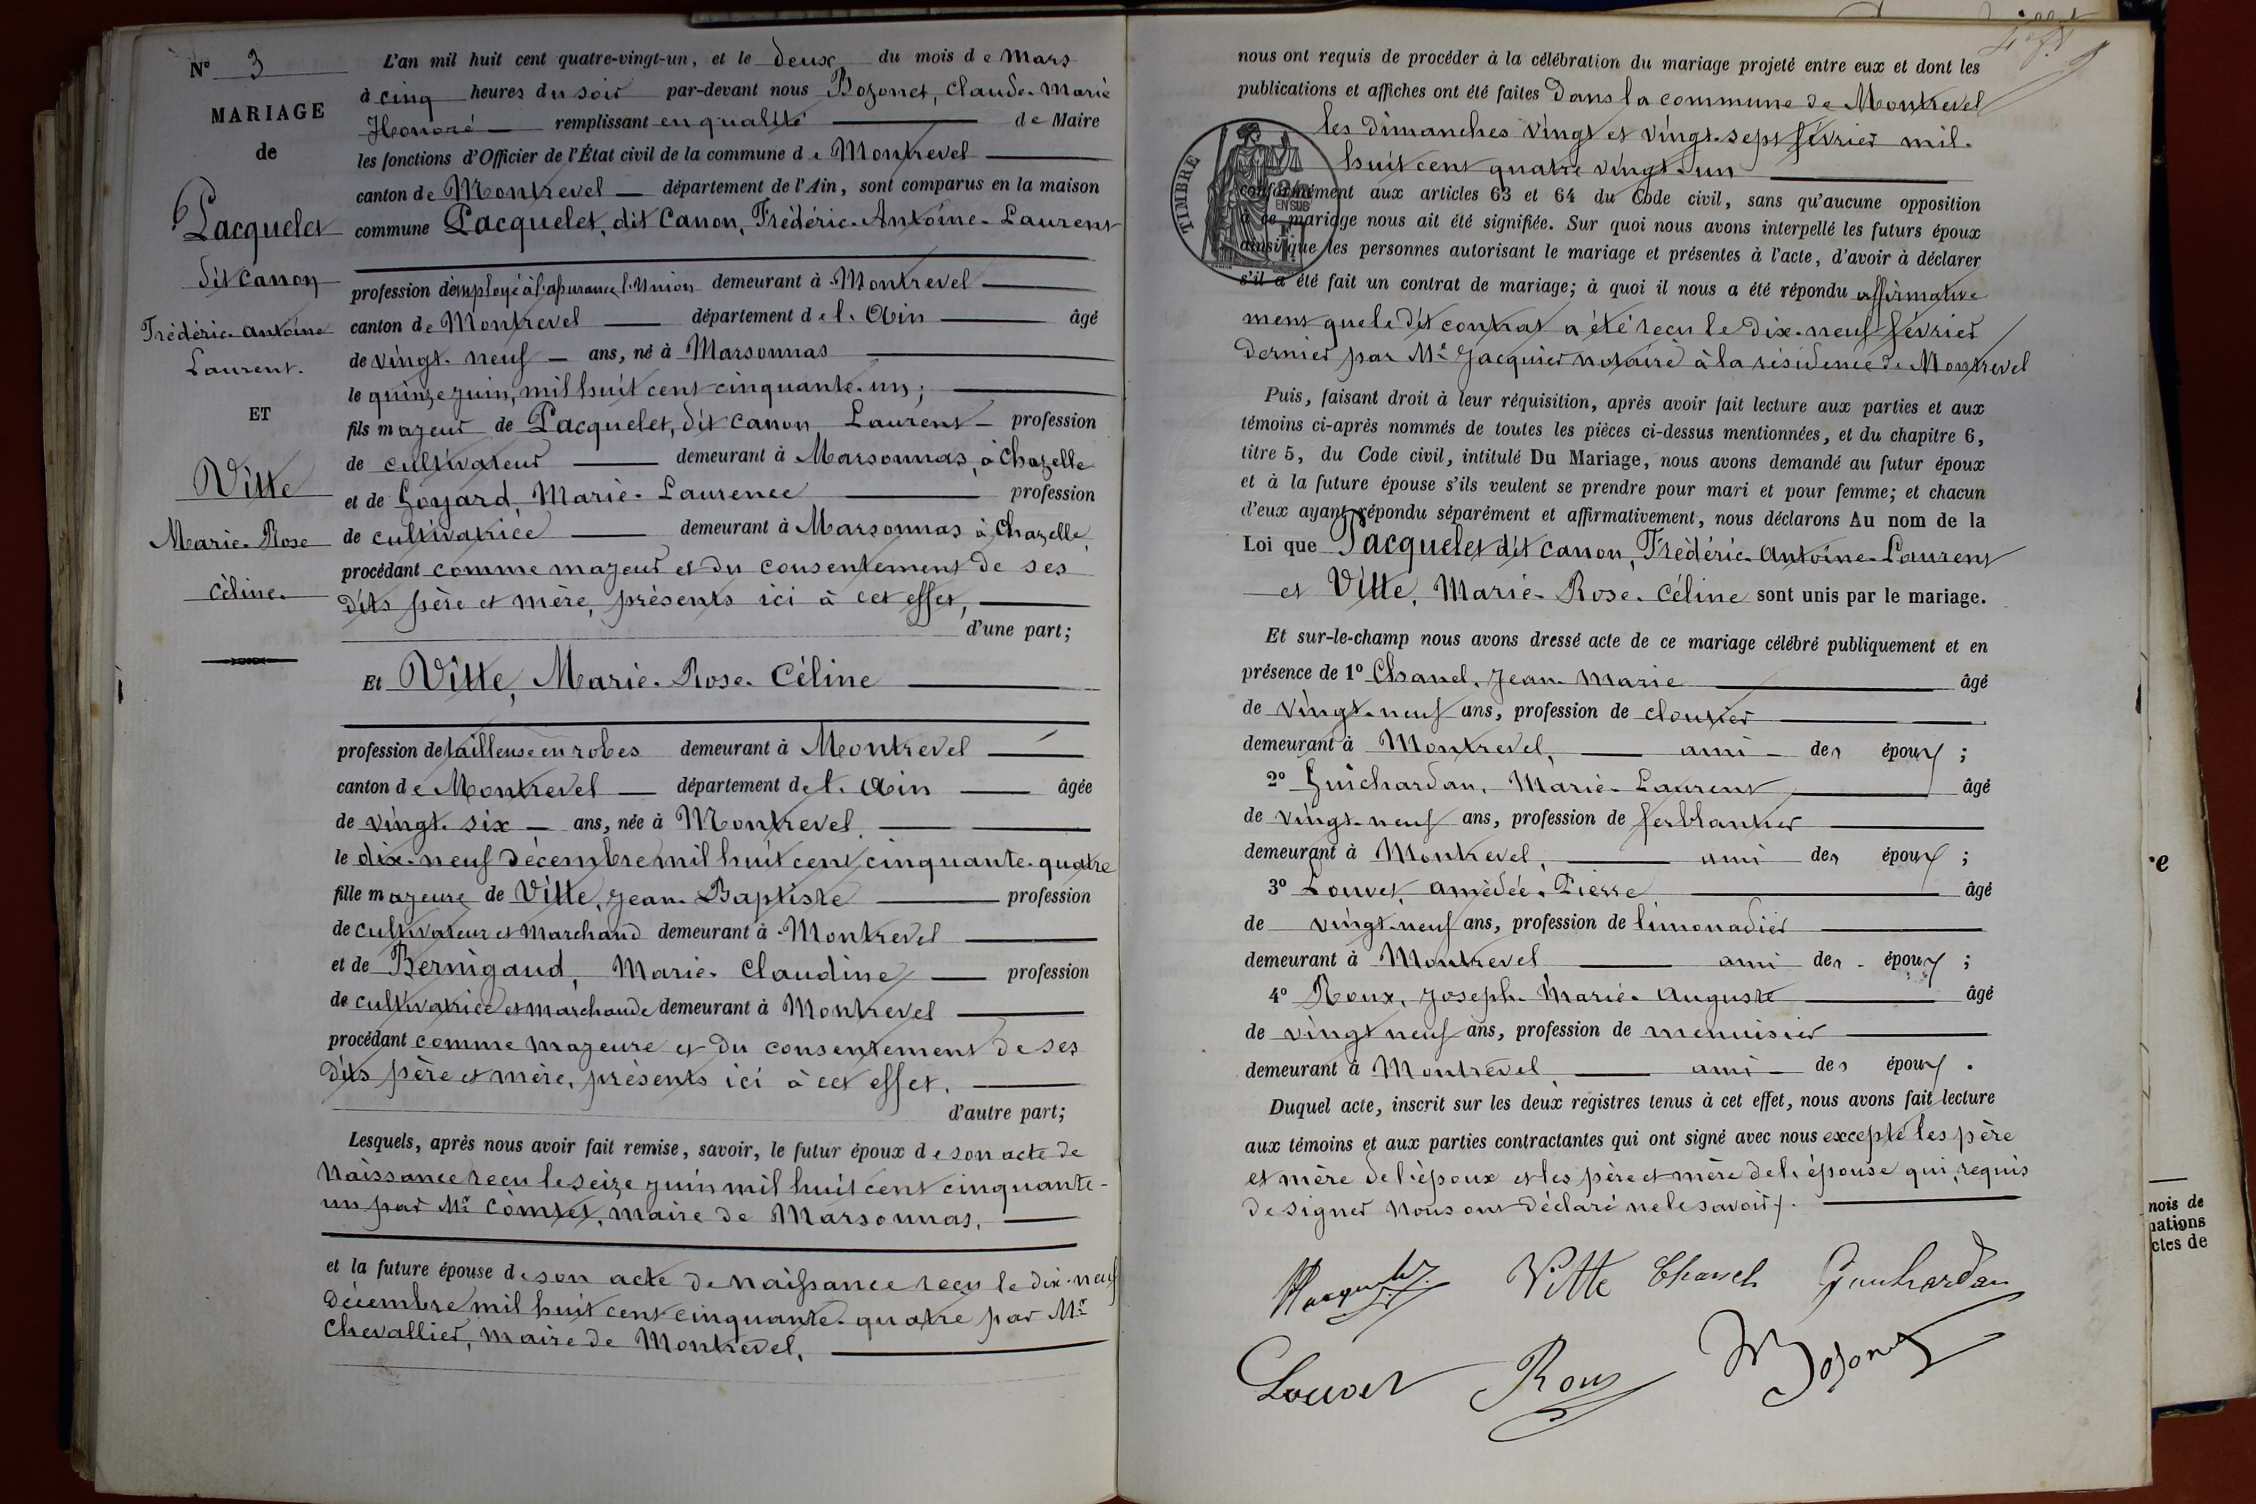 N° 3
MARIAGE
de
Pacquelet
dit Canon
Frédéric-Antoine
Laurent.
ET
Vitte
Marie-Rose
Céline.
L'an mil huit cent quatre-vingt-un, et le deux du mois de Mars
à cinq heures du soir par-devant nous Bozonet, Claude-Marie
Honoré remplissant en qualité de Maire
les fonctions d'Officier de l'État civil de la commune de Montrevel
canton de Montrevel département de l'Ain, sont comparus en la maison
commune Pacquelet, dit Canon, Frédéric-Antoine-Laurent
profession d'employé à l'assurance l'Union demeurant à Montrevel
canton de Montrevel département de l'Ain âgé
de vingt-neuf ans, né à Marsonnas
le quinze juin, mil huit cent cinquante-un;
fils majeur de Pacquelet, dit Canon Laurent profession
de cultivateur demeurant à Marsonnas, à Chazelle
et de Goyard, Marie-Laurence profession
de cultivatrice demeurant à Marsonnas à Chazelle,
procédant comme majeur et du consentement de ses
dits père et mère, présents ici à cet effet,
d'une part;
Et Vitte, Marie-Rose-Céline
profession de tailleuse en robes demeurant à Montrevel
canton de Montrevel département de l'Ain âgée
de vingt-six ans, née à Montrevel,
le dix-neuf décembre mil huit cent cinquante-quatre
fille majeure de Vitte, Jean-Baptiste profession
de cultivateur et marchand demeurant à Montrevel
et de Bernigaud, Marie-Claudine profession
de cultivatrice et marchande demeurant à Montrevel
procédant comme majeure et du consentement de ses
dits père et mère, présents ici à cet effet.
d'autre part;
Lesquels, après nous avoir fait remise, savoir, le futur époux de son acte de
naissance reçu le seize juin mil huit cent cinquante-
un par Mr Comtet, maire de Marsonnas.
et la future épouse de son acte de naissance reçu le dix-neuf
décembre mil huit cent cinquante-quatre par Mr
Chevallier, maire de Montrevel.
nous ont requis de procéder à la célébration du mariage projeté entre eux et dont les
publications et affiches ont été faites dans la commune de Montrevel
les dimanches vingt et vingt-sept février mil-
huit cent quatre vingt-un
TIMBRE
EN SUS
conformément aux articles 63 et 64 du Code civil, sans qu'aucune opposition
à ce mariage nous ait été signifiée. Sur quoi nous avons interpellé les futurs époux
ainsi que les personnes autorisant le mariage et présentes à l'acte, d'avoir à déclarer
s'il a été fait un contrat de mariage; à quoi il nous a été répondu affirmative
ment que le dit contrat a été reçu le dix-neuf février
dernier par Me Jacquier notaire à la résidence de Montrevel
Puis, faisant droit à leur réquisition, après avoir fait lecture aux parties et aux
témoins ci-après nommés de toutes les pièces ci-dessus mentionnées, et du chapitre 6,
titre 5, du Code civil, intitulé Du Mariage, nous avons demandé au futur époux
et à la future épouse s'ils veulent se prendre pour mari et pour femme; et chacun
d'eux ayant répondu séparément et affirmativement, nous déclarons Au nom de la
Loi que Pacquelet dit Canon, Frédéric-Antoine-Laurent
et Vitte, Marie-Rose-Céline sont unis par le mariage.
Et sur-le-champ nous avons dressé acte de ce mariage célébré publiquement et en
présence de 1° Chanel, Jean-Marie âgé
de vingt-neuf ans, profession de cloutier
demeurant à Montrevel, ami des époux;
2° Guichardan, Marie-Laurent âgé
de vingt-neuf ans, profession de ferblantier
demeurant à Montrevel, ami des époux;
3° Louvet, Amédée-Pierre âgé
de vingt-neuf ans, profession de limonadier
demeurant à Montrevel ami des époux;
4° Roux, Joseph-Marie-Auguste âgé
de vingt neuf ans, profession de menuisier
demeurant à Montrevel ami des époux.
Duquel acte, inscrit sur les deux registres tenus à cet effet, nous avons fait lecture
aux témoins et aux parties contractantes qui ont signé avec nous excepté les père
et mère de l'époux et les père et mère de l'épouse qui, requis
de signer nous ont déclaré ne le savoir.
Vitte Chanel Guichardan
Louvet Roux Bozonet
nois de
nations
ctes de